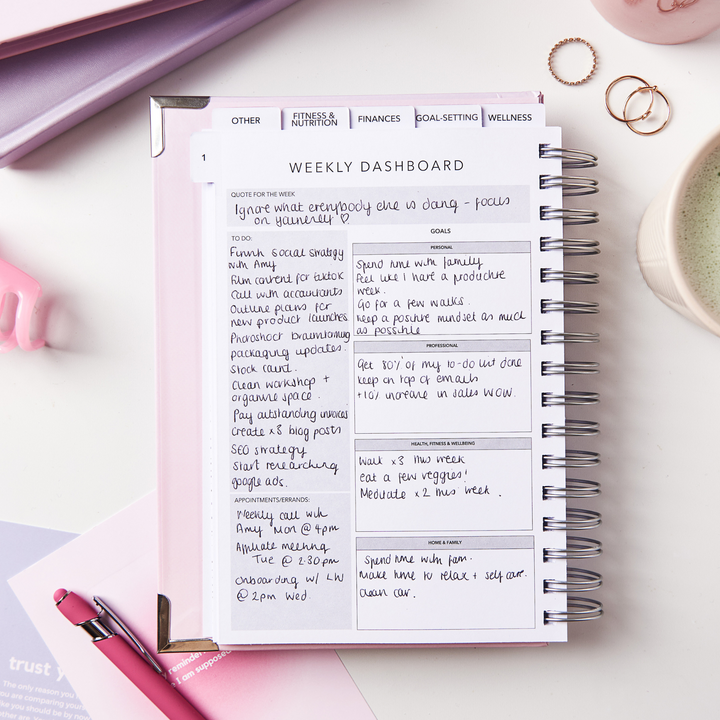 OTHER
FITNESS & NUTRITION
FINANCES
GOAL-SETTING
WELLNESS
1
WEEKLY DASHBOARD
QUOTE FOR THE WEEK
Ignore what everybody else is doing - focus
on yourself ♡
TO DO:
Finish social strategy
with Amy
Film content for tiktok
Call with accountants
Outline plans for
new product launches
Photoshoot brainstorming
packaging updates.
Stock count.
Clean workshop +
organise space.
Pay outstanding invoices
Create x3 blog posts
SEO strategy
Start researching
google ads.
APPOINTMENTS/ERRANDS:
Weekly call with
Amy Mon @ 4pm
Affiliate meeting
Tue @ 2:30pm
Onboarding w/ LW
@ 2pm Wed.
GOALS
PERSONAL
Spend time with family
Feel like I have a productive
week.
Go for a few walks.
Keep a positive mindset as much
as possible
PROFESSIONAL
Get 80% of my to-do list done
keep on top of emails
+10% increase in sales WOW.
HEALTH, FITNESS & WELLBEING
Walk x3 this week
eat a few veggies!
Meditate x2 this week.
HOME & FAMILY
Spend time with fam.
Make time to relax + self care.
Clean car.
trust y
The only reason you
you are comparing yourse
like you should be by now
reminder
I am suppose